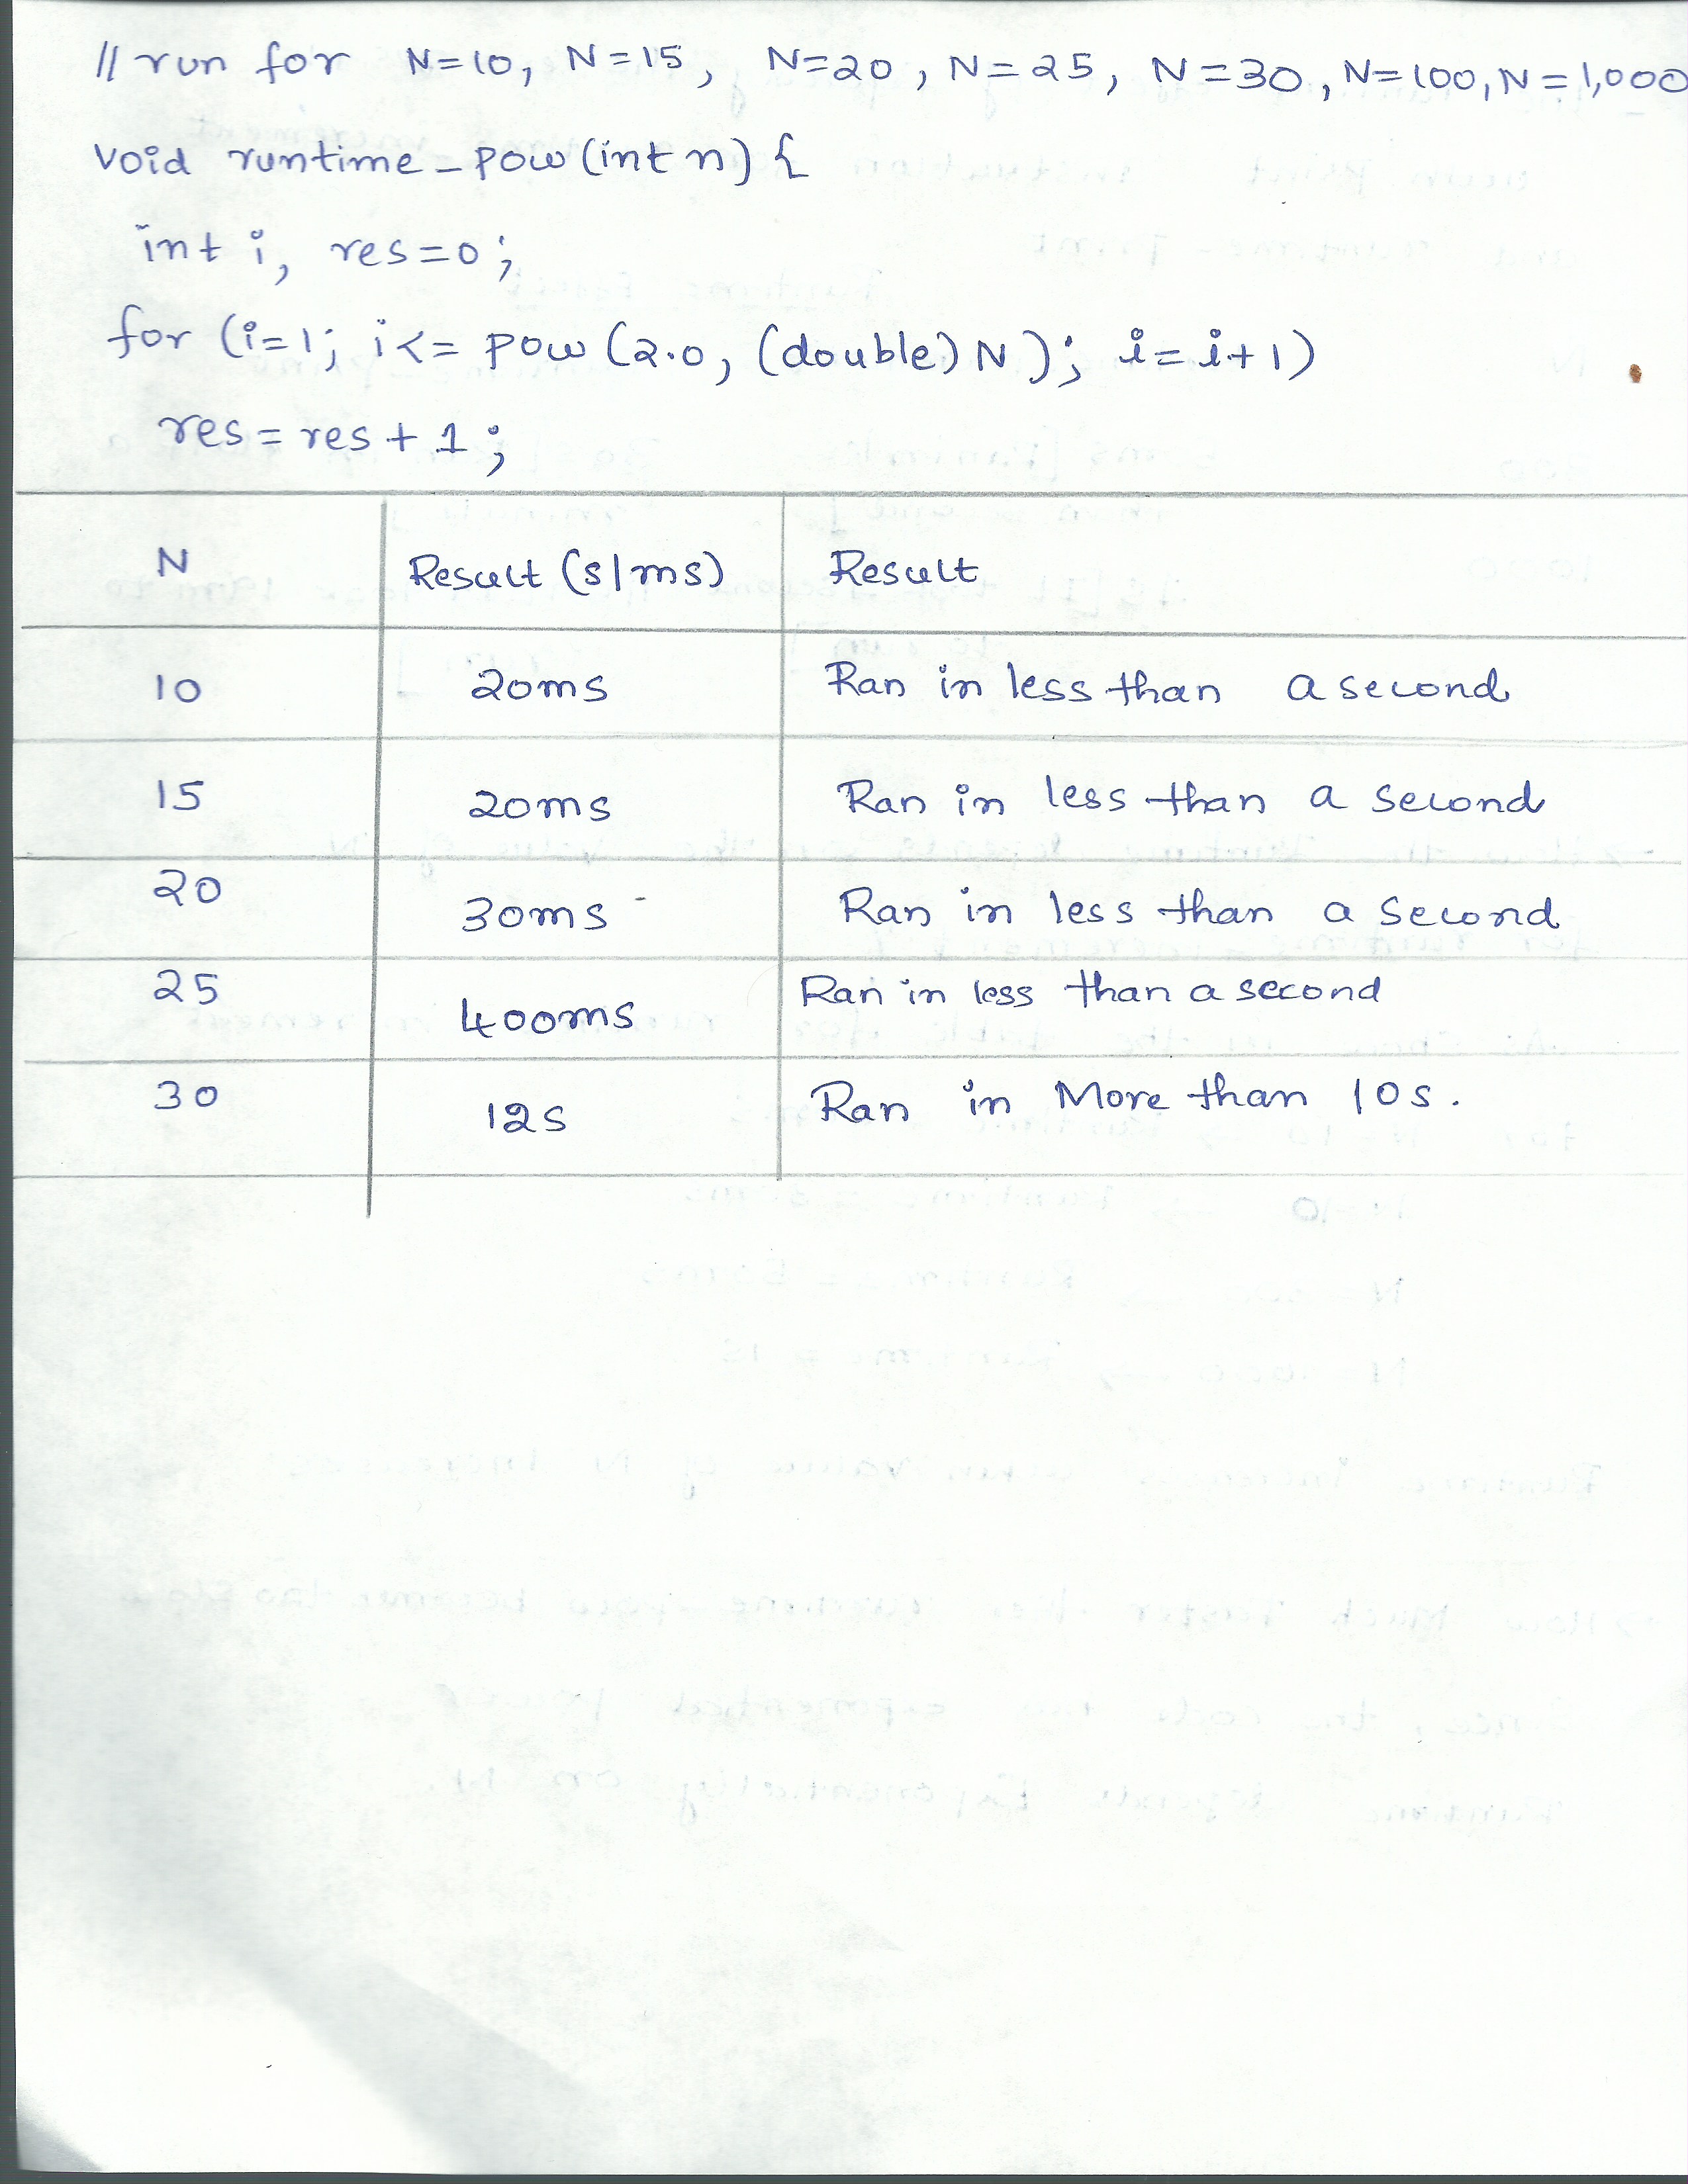 // run for N=10, N=15, N=20, N=25, N=30, N=100, N=1,000
void runtime_pow(int n) {
int i, res=0;
for (i=1; i<= pow(2.0, (double) N); i=i+1)
res=res+1;
N Result (s/ms) Result
10 20ms Ran in less than a second
15 20ms Ran in less than a second
20 30ms Ran in less than a second
25 400ms Ran in less than a second
30 12s Ran in More than 10s.